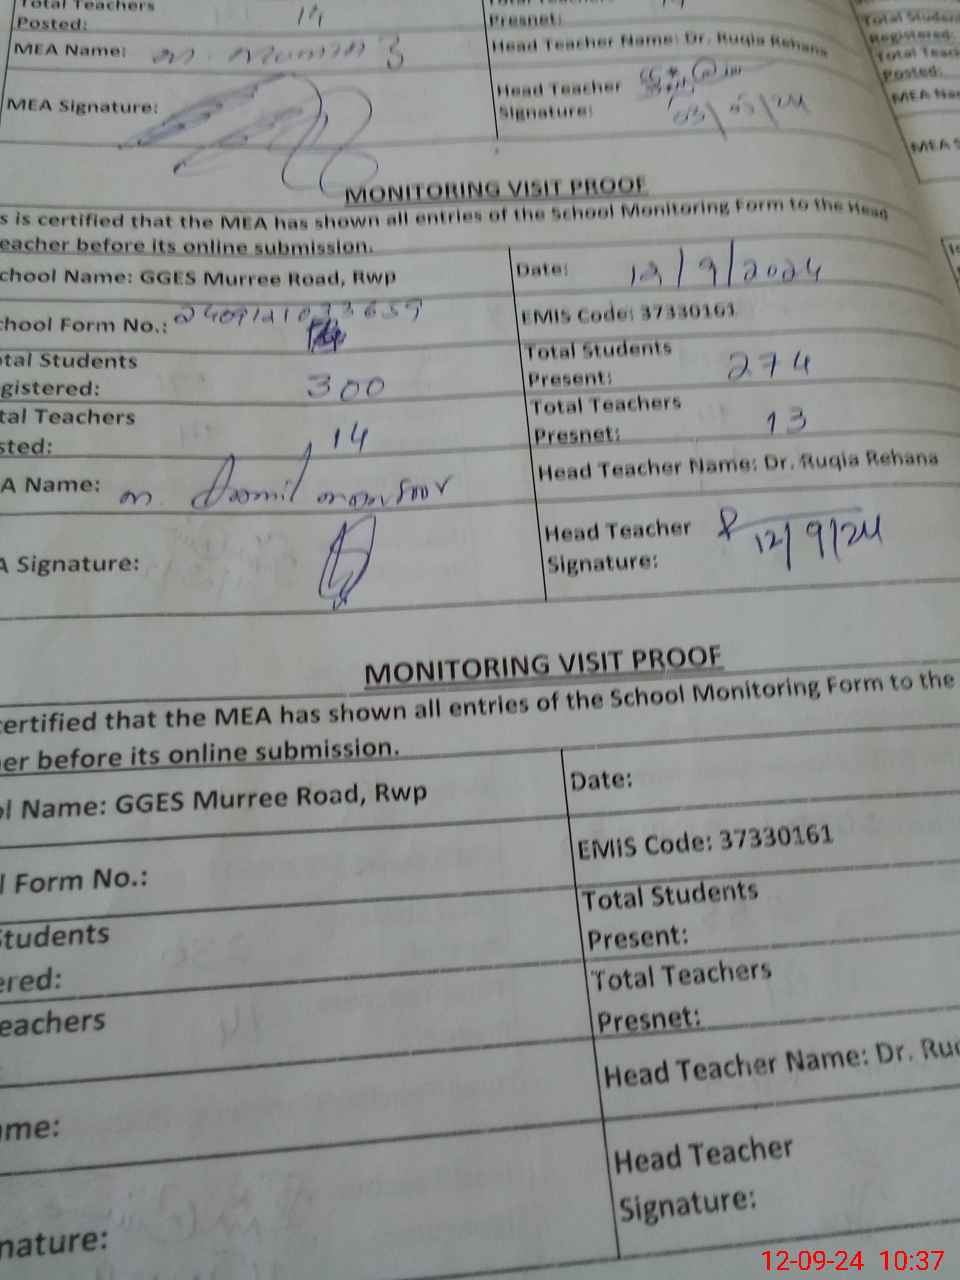 Total Teachers
Posted: 14
Presnet:
MEA Name: m.
Head Teacher Name: Dr. Ruqia Rehana
MEA Signature:
Head Teacher
Signature: 03/05/24
Total Studen
Registered:
Total Teac
Posted:
MEA Na
MEA S
MONITORING VISIT PROOF
s is certified that the MEA has shown all entries of the School Monitoring Form to the Head
eacher before its online submission.
chool Name: GGES Murree Road, Rwp
Date: 12/9/2024
chool Form No.:
EMIS Code: 37330161
otal Students
gistered: 300
Total Students
Present: 274
tal Teachers
sted: 14
Total Teachers
Presnet: 13
A Name: m. mansoor
Head Teacher Name: Dr. Ruqia Rehana
A Signature:
Head Teacher
Signature: 12/9/24
MONITORING VISIT PROOF
certified that the MEA has shown all entries of the School Monitoring Form to the
er before its online submission.
ol Name: GGES Murree Road, Rwp
Date:
l Form No.:
EMIS Code: 37330161
Students
ered:
Total Students
Present:
eachers
Total Teachers
Presnet:
ame:
Head Teacher Name: Dr. Ruq
nature:
Head Teacher
Signature:
12-09-24 10:37